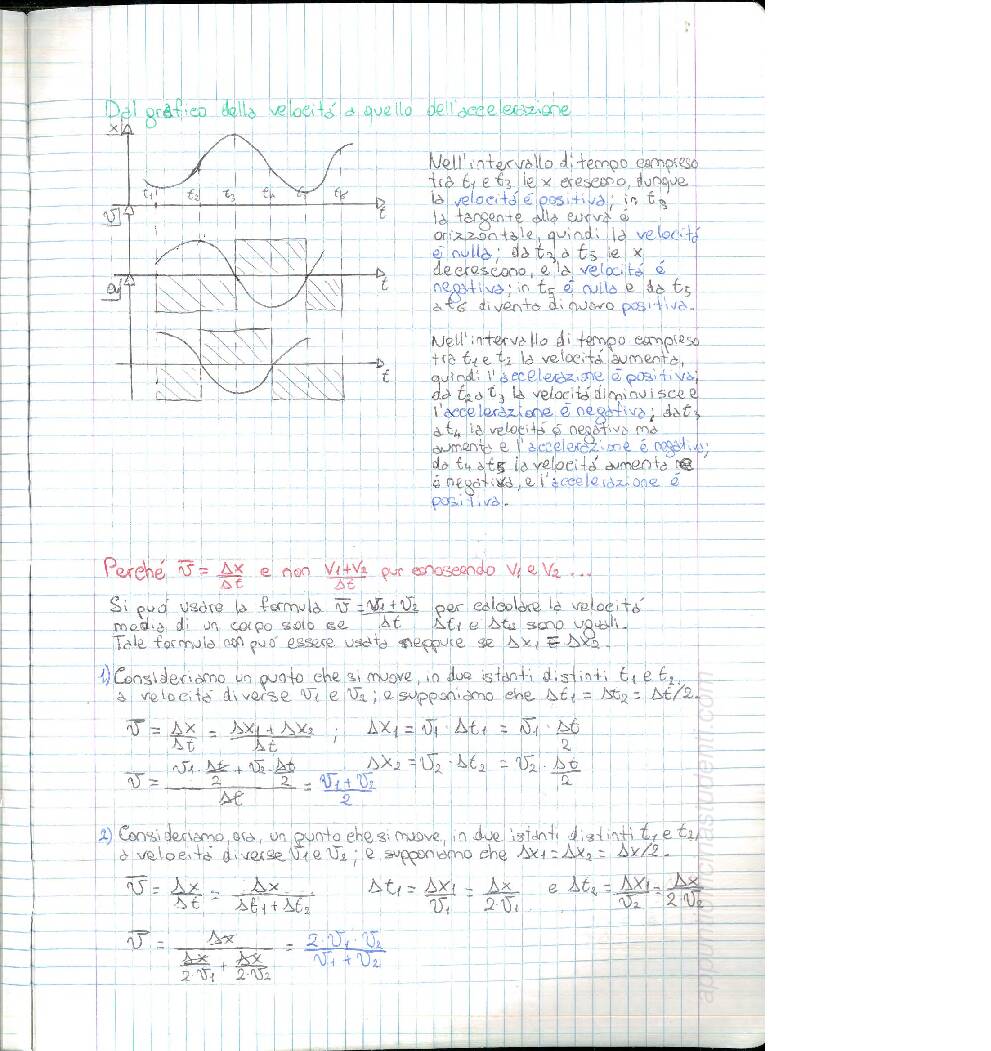 Dal grafico della velocitá a quello dell'accelerazione
x
t1 t2 t3 t4 t5 t6
t
v
t
a
t
Nell'intervallo di tempo compreso
tra t1 e t3 le x crescono, dunque
la velocitá é positiva; in t3
la tangente alla curva é
orizzontale, quindi la velocitá
é nulla; da t3 a t5 le x
decrescono, e la velocitá é
negativa; in t5 é nulla e da t5
a t6 diventa di nuovo positiva.
Nell'intervallo di tempo compreso
tra t1 e t2 la velocitá aumenta,
quindi l'accelerazione é positiva;
da t2 a t3 la velocitá diminuisce e
l'accelerazione é negativa; da t3
a t4 la velocitá é negativa ma
aumenta e l'accelerazione é negativa;
da t4 a t5 la velocitá aumenta
é negativa, e l'accelerazione é
positiva.
Perché v̅ = Δx/Δt e non V1+V2/Δt pur conoscendo V1 e V2 ...
Si puó usare la formula v̅ = v1+v2/Δt per calcolare la velocitá
media di un corpo solo se Δt1 e Δt2 sono uguali.
Tale formula non puó essere usata neppure se Δx1 = Δx2.
1) Consideriamo un punto che si muove, in due istanti distinti t1 e t2,
a velocitá diverse v1 e v2; e supponiamo che Δt1 = Δt2 = Δt/2.
v̅ = Δx/Δt = Δx1+Δx2/Δt ; Δx1 = v1 · Δt1 = v1 · Δt/2
Δx2 = v2 · Δt2 = v2 · Δt/2
v̅ = v1 · Δt/2 + v2 · Δt/2 / Δt = v1+v2/2
2) Consideriamo, ora, un punto che si muove, in due istanti distinti t1 e t2,
a velocitá diverse v1 e v2; e supponiamo che Δx1 = Δx2 = Δx/2.
v̅ = Δx/Δt = Δx/Δt1+Δt2 Δt1 = Δx1/v1 = Δx/2·v1 e Δt2 = Δx1/v2 = Δx/2·v2
v̅ = Δx / Δx/2·v1 + Δx/2·v2 = 2·v1·v2/v1+v2